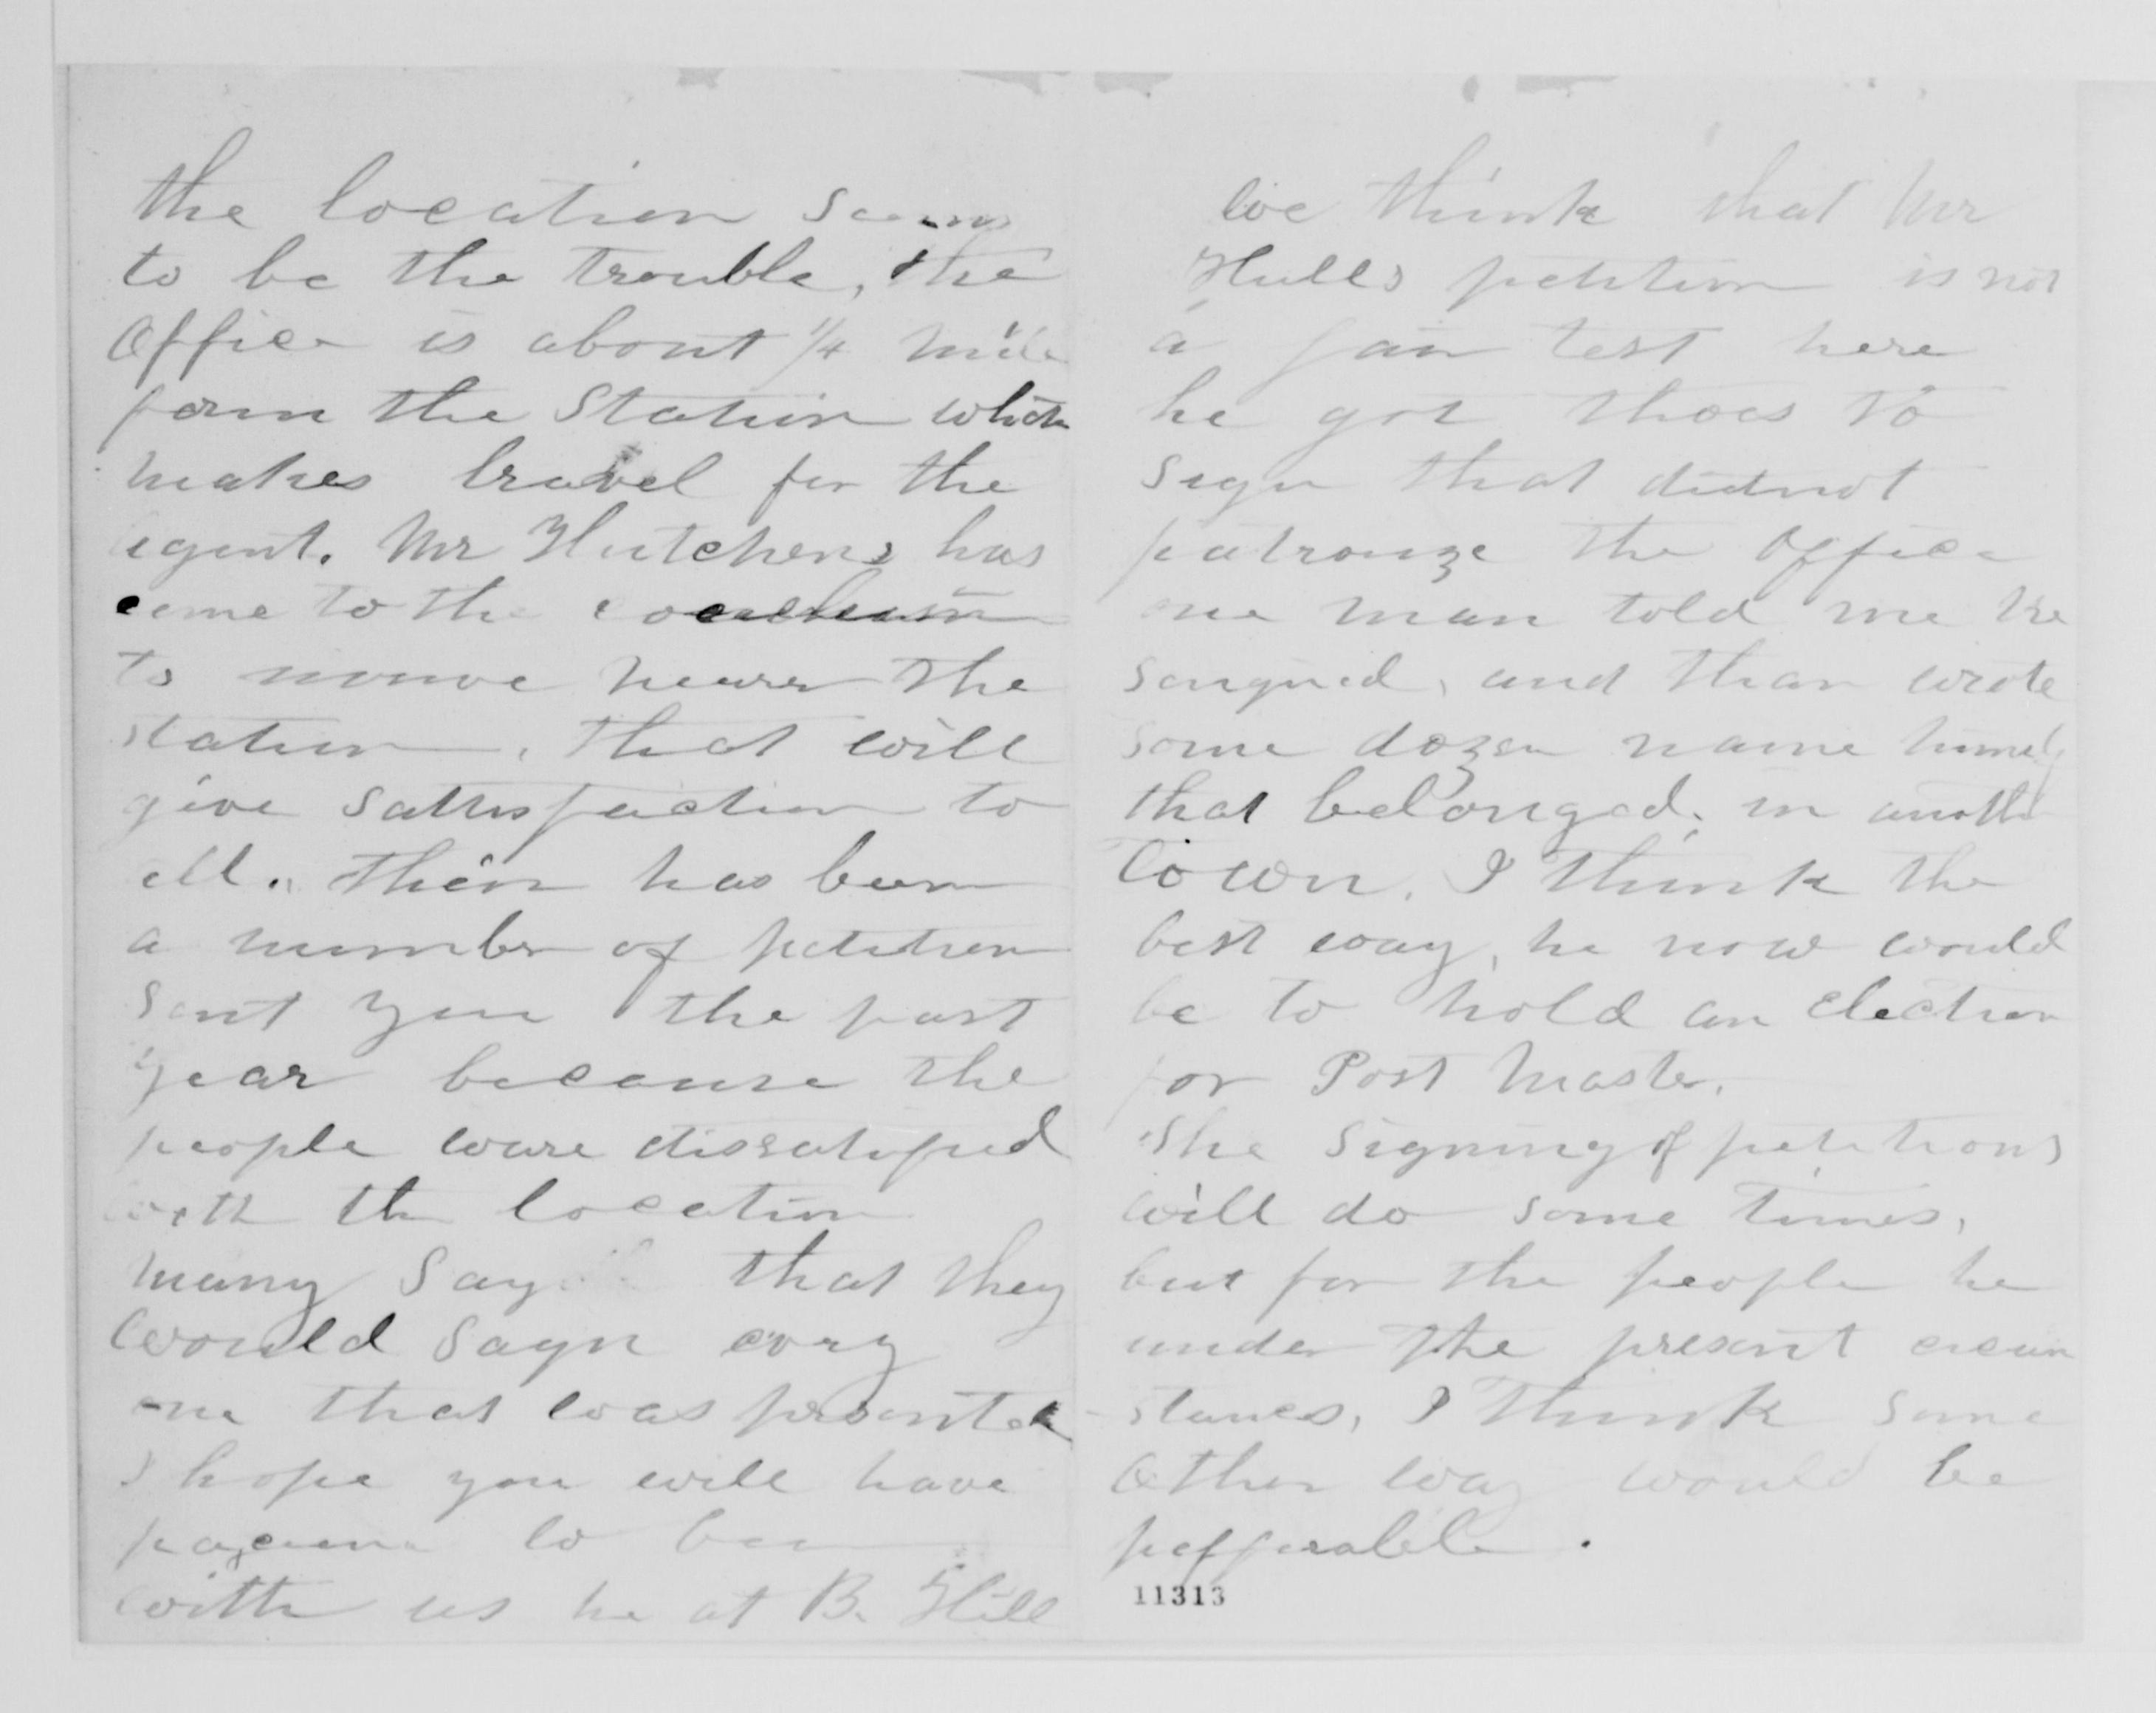 the location seems
to be the trouble, the
Office is about 1/4 mile
form the Station which
makes travel for the
agent. Mr Hutchens has
come to the
to moove nearer the
station, that will
give sattisfaction to
all. their has been
a number of petition
sent you the past
year because the
people ware dissatisfied
with the location
many say that they
would sagn evry
one that was presented
I hope you will have
to
with us he at B. Hill
we think that Mr
Hulls petition is not
a fair test here
he got thoes to
sign that didnot
patronize the Office
one man told me he
sengned, and than wrote
some dozen name himself
that belonged, in another
Town. I think the
best way, he now would
be to hold an Election
for Post Master.
The Signing of petitions
will do some times,
but for the people he
under the present circum
stances, I think some
other way would be
pefferable.
11313